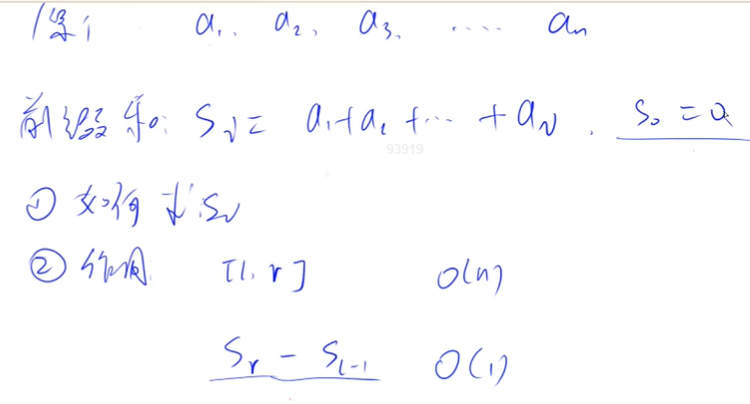 a₁, a₂, a₃, ..... aₙ
前缀和: Sᵢ = a₁+a₂+...+aᵢ. S₀ = 0
93919
① 如何求Sᵢ
② 作用 [l, r] O(n)
Sᵣ - Sₗ₋₁ O(1)